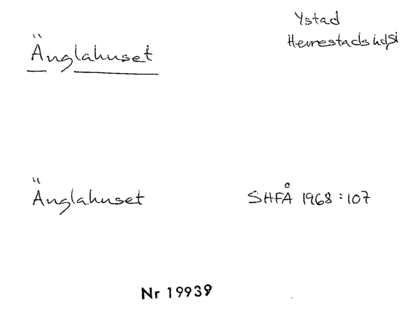 Ystad
Herrestads hdsi
Änglahuset
Änglahuset SHFÅ 1968:107
Nr 19939